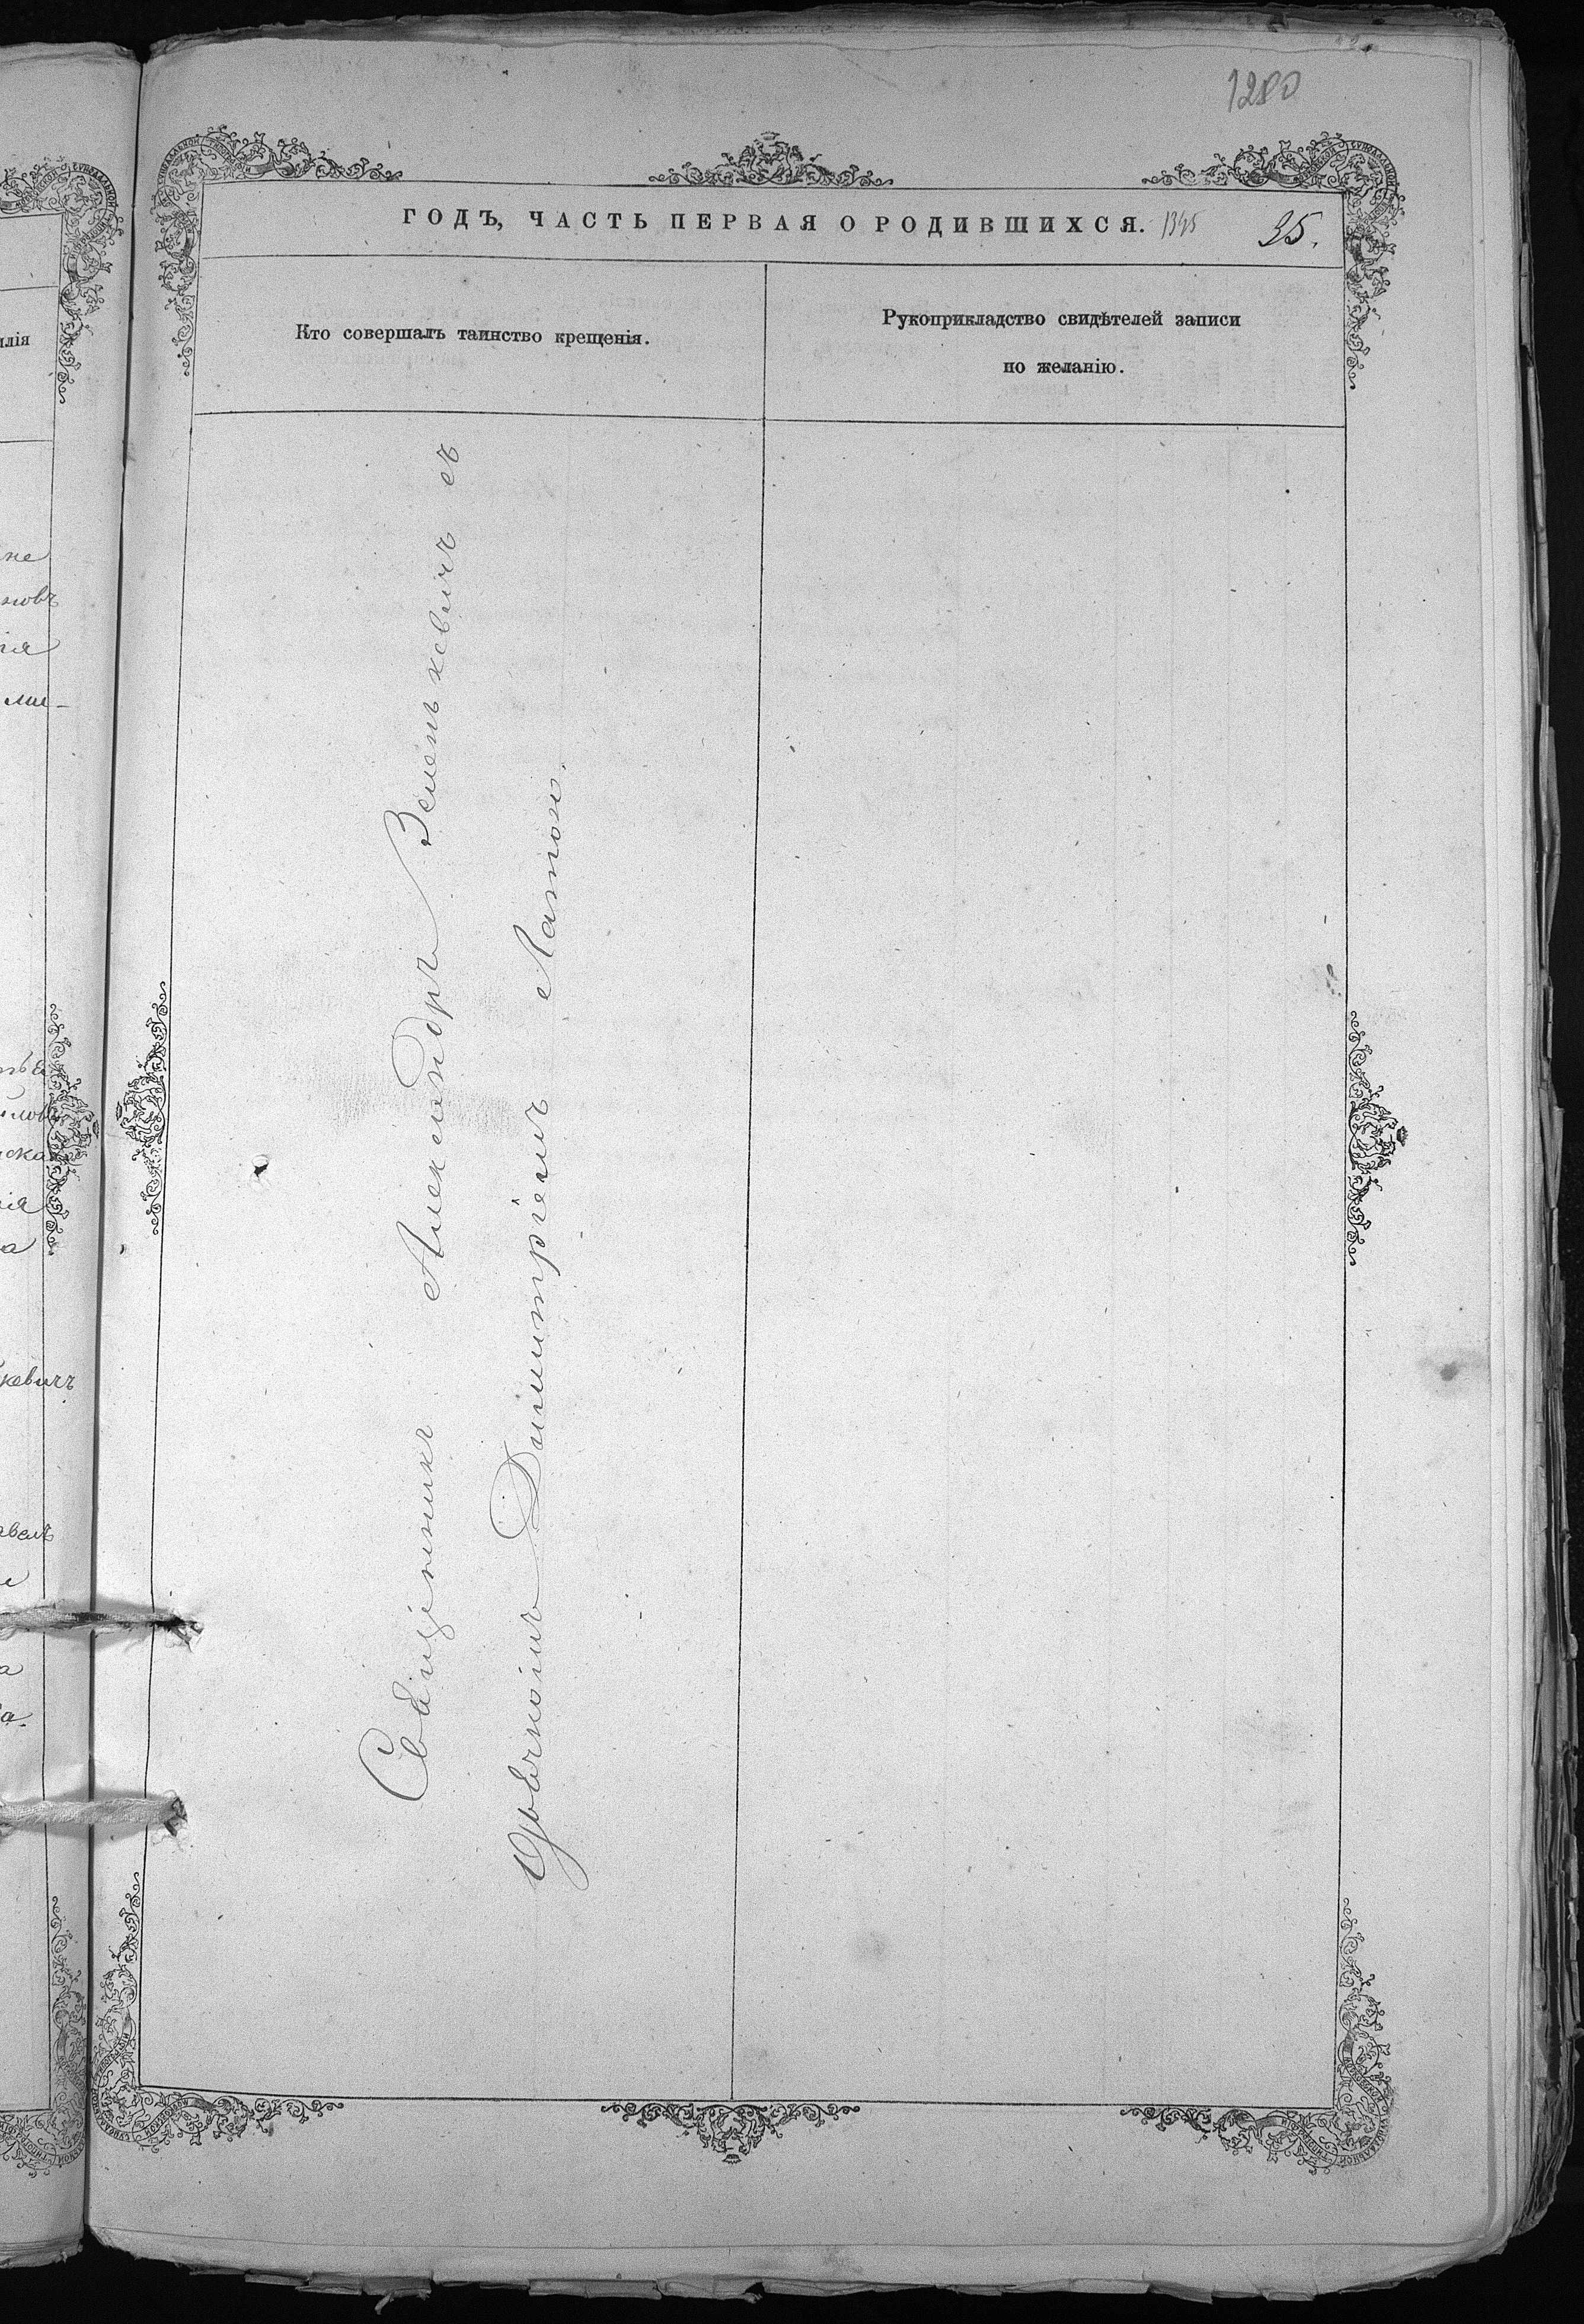 1280
ГОДЪ, ЧАСТЬ ПЕРВАЯ О РОДИВШИХСЯ. 1345 35.
Кто совершалъ таинство крещенія.
Рукоприкладство свидѣтелей записи
по желанію.
Священникъ Александръ Зеленкевичъ съ
Димитріемъ Лапою.
илія
не
новъ
ія
ми-
ска
ія
а
кевичъ
а
а.